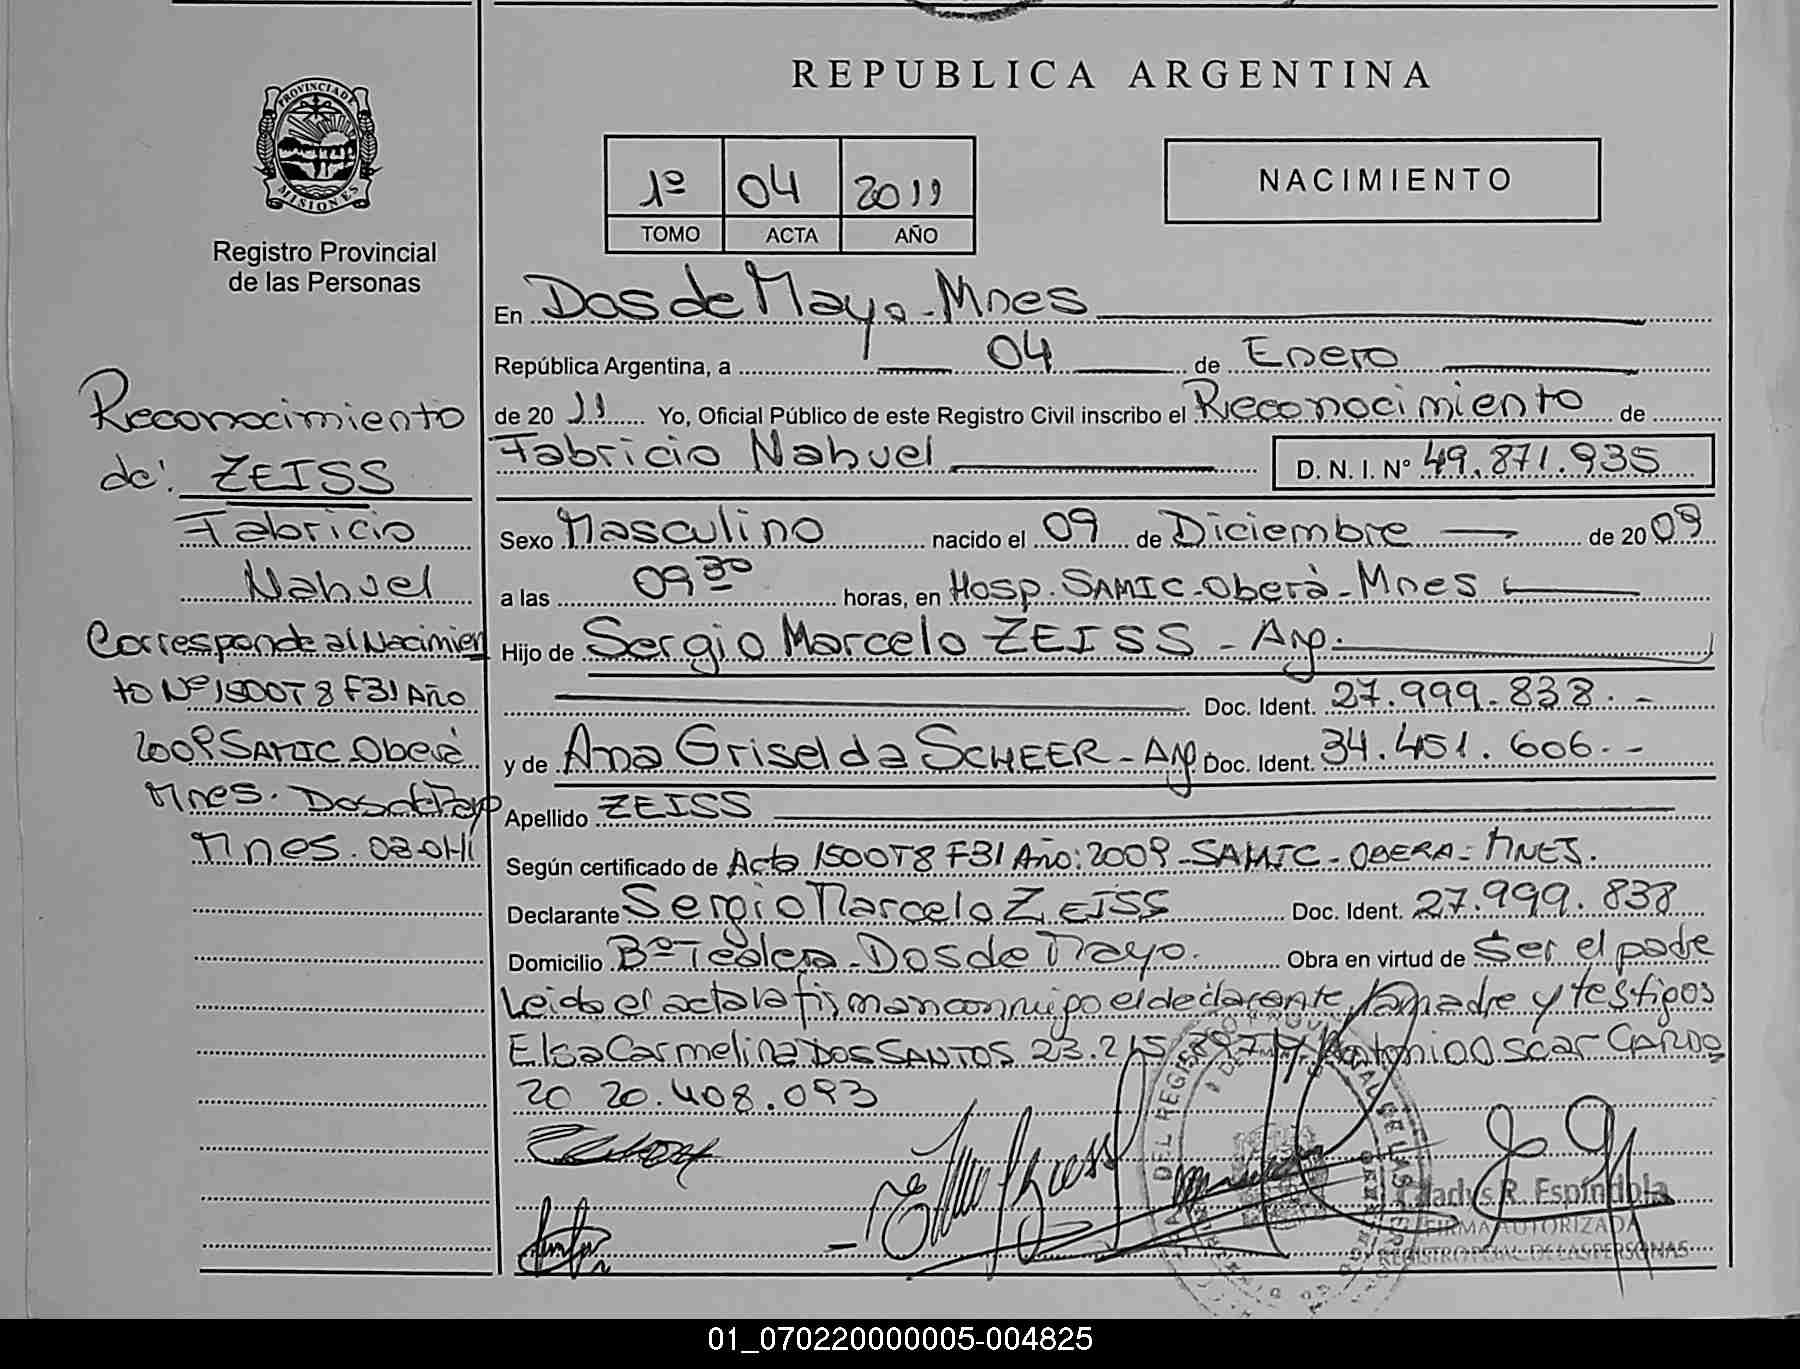 REPUBLICA ARGENTINA
PROVINCIA DE
MISIONES
Registro Provincial
de las Personas
1º 04 2011
TOMO ACTA AÑO
NACIMIENTO
Reconocimiento
de: ZEISS
Fabricio
Nahuel
Corresponde al Nacimien
to Nº 1500 T8 F31 Año
2009 SAMIC Oberá
Mnes. Dos de Mayo
Mnes.
En Dos de Mayo - Mnes
República Argentina, a 04 de Enero
de 20 11 Yo, Oficial Público de este Registro Civil inscribo el Reconocimiento de
Fabricio Nahuel D. N. I. Nº 49.871.935
Sexo Masculino nacido el 09 de Diciembre de 20 09
a las 09 30 horas, en Hosp. SAMIC - Oberá - Mnes
Hijo de Sergio Marcelo ZEISS - Arg.
Doc. Ident. 27.999.838.-
y de Ana Griselda SCHEER - Arg. Doc. Ident. 34.451.606.-
Apellido ZEISS
Según certificado de Acta 1500 T8 F31 Año: 2009 - SAMIC - OBERA - MNES.
Declarante Sergio Marcelo ZEISS Doc. Ident. 27.999.838
Domicilio Bº Tealera - Dos de Mayo. Obra en virtud de Ser el padre
Leida el acta la firman conmigo el declarante, la madre y testigos
Elsa Carmelina DOS SANTOS 23.215. y Antonio Oscar CARDO
ZO 20.408.093
Gladys R. Espíndola
FIRMA AUTORIZADA
REGISTRO PCIAL. DE LAS PERSONAS
01_070220000005-004825